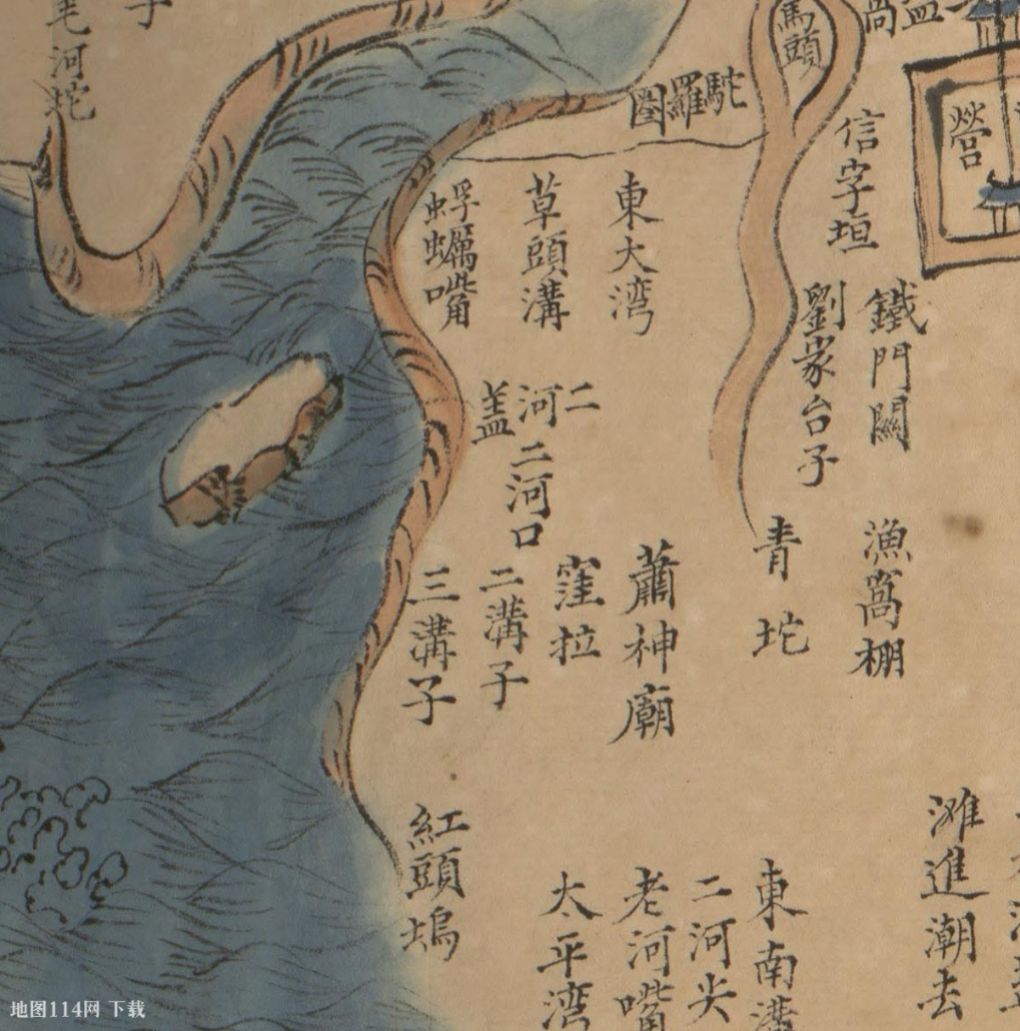 子
毛河坨
馬頭
駝羅圈
營
信字垣
東大湾
草頭溝
蜉蠣嘴
鐵門關
劉家台子
二河盖
二河口
漁窩棚
青坨
蕭神廟
窪拉
二溝子
三溝子
紅頭塢
滩進潮去
東南溝
二河尖
老河嘴
太平湾
地图114网 下载